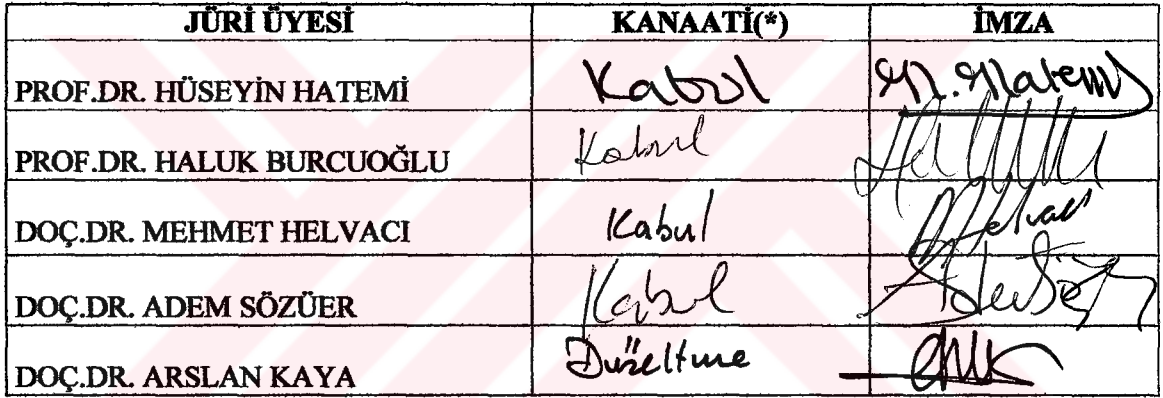 JÜRİ ÜYESİ KANAATİ(*) İMZA
PROF.DR. HÜSEYİN HATEMİ Kabul H. Hatemi
PROF.DR. HALUK BURCUOĞLU Kabul
DOÇ.DR. MEHMET HELVACI Kabul
DOÇ.DR. ADEM SÖZÜER Kabul
DOÇ.DR. ARSLAN KAYA Düzeltme